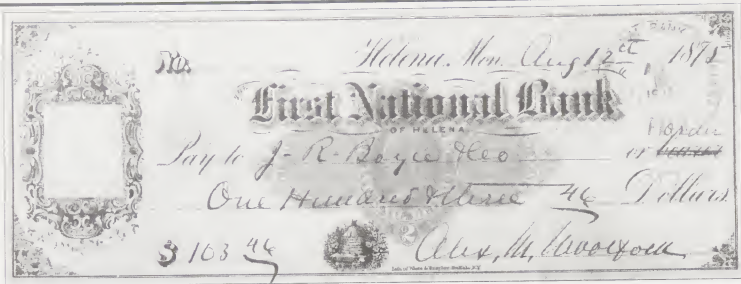 No. Helena, Mon. Aug 12th, 187
First National Bank
OF HELENA
Pay to J. R. Boyce &Co or
One Hundred & three 46 Dollars
$ 103 46
Alex. M. Woolfolk